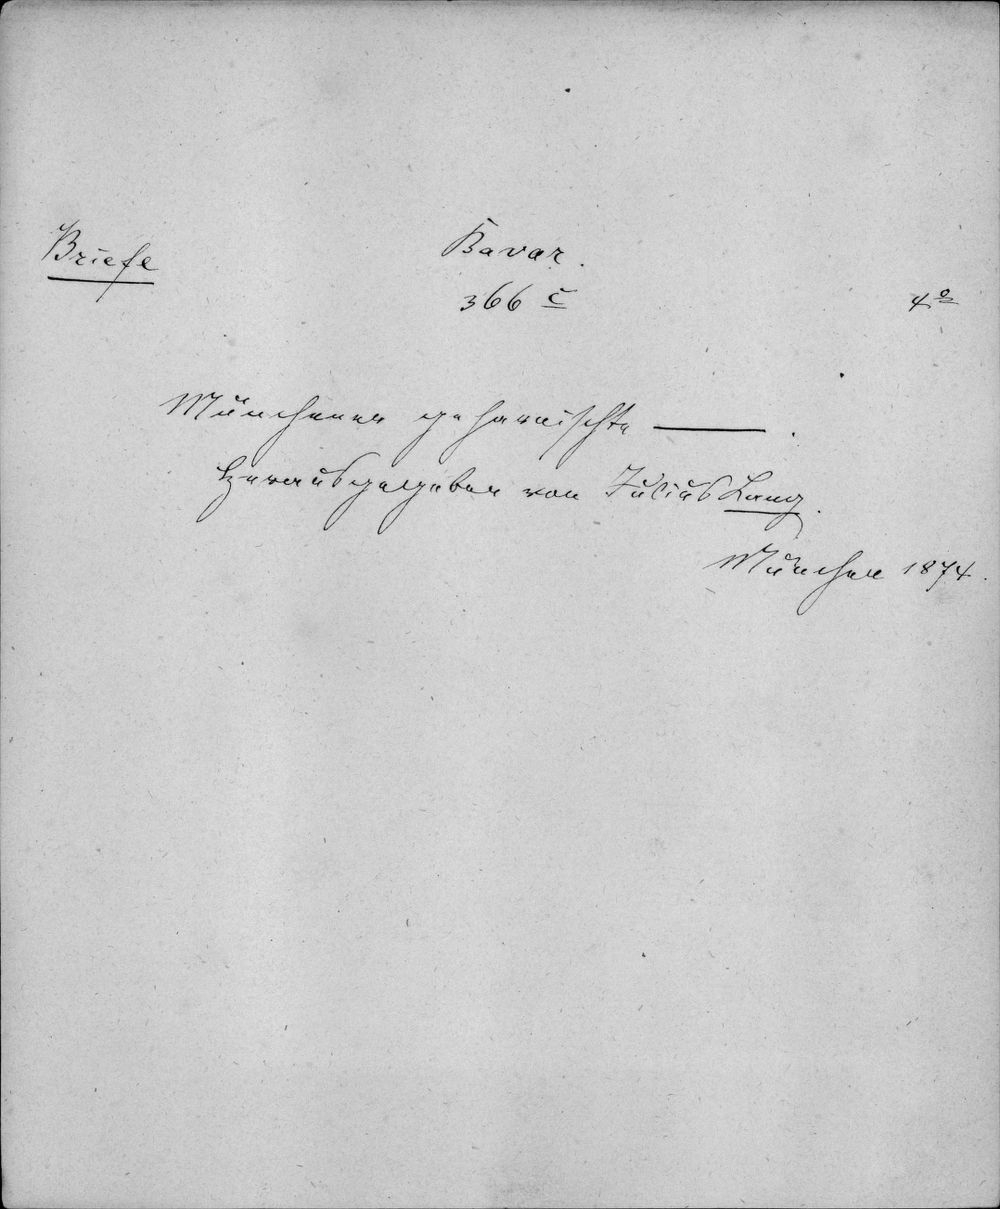 Briefe
Bavar.
366 c
4o
Münchener geharnischte ——— .
Herausgegeben von Julius Lang.
München 1874.